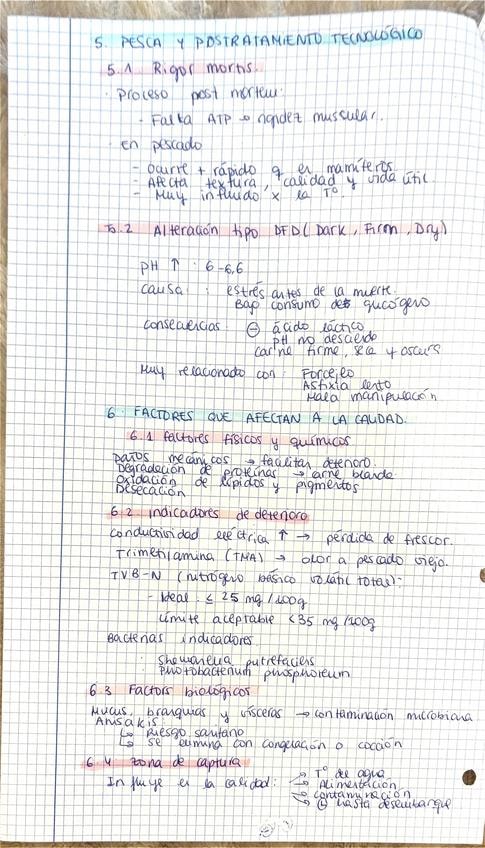 5. PESCA Y POSTRATAMIENTO TECNOLÓGICO
5.1 Rigor mortis.
· Proceso post mortem:
- Falta ATP → rigidez muscular.
· en pescado
- ocurre + rápido q en mamíferos.
- Afecta textura, calidad y vida útil.
- Muy influido x la Tº.
5.2 Alteración tipo DFD (Dark, Firm, Dry)
pH ↑ : 6-6,6
causa : estrés antes de la muerte.
Bajo consumo de glucógeno
consecuencias: ⊖ ácido láctico
pH no desciende
carne firme, seca y oscura
Muy relacionado con: Forcejeo
Asfixia lenta
Mala manipulación
6. FACTORES QUE AFECTAN A LA CALIDAD.
6.1 Factores físicos y químicos
Daños mecánicos → facilitan deterioro.
Degradación de proteínas → carne blanda
Oxidación de lípidos y pigmentos
Desecación
6.2 Indicadores de deterioro
Conductividad eléctrica ↑ → pérdida de frescor.
Trimetilamina (TMA) → olor a pescado viejo.
TVB-N (nitrógeno básico volátil total):
- Ideal: ≤ 25 mg/100g
Límite aceptable <35 mg/100g
Bacterias indicadores
· Shewanella putrefaciens
· Photobacterium phosphoreum
6.3 Factors biológicos
Mucus, branquias y vísceras → contaminación microbiana
Anisakis:
↳ Riesgo sanitario
↳ se elimina con congelación o cocción
6.4 zona de captura
Influye en la calidad: → Tº de agua
→ Alimentación
→ contaminación
→ hasta desembarque